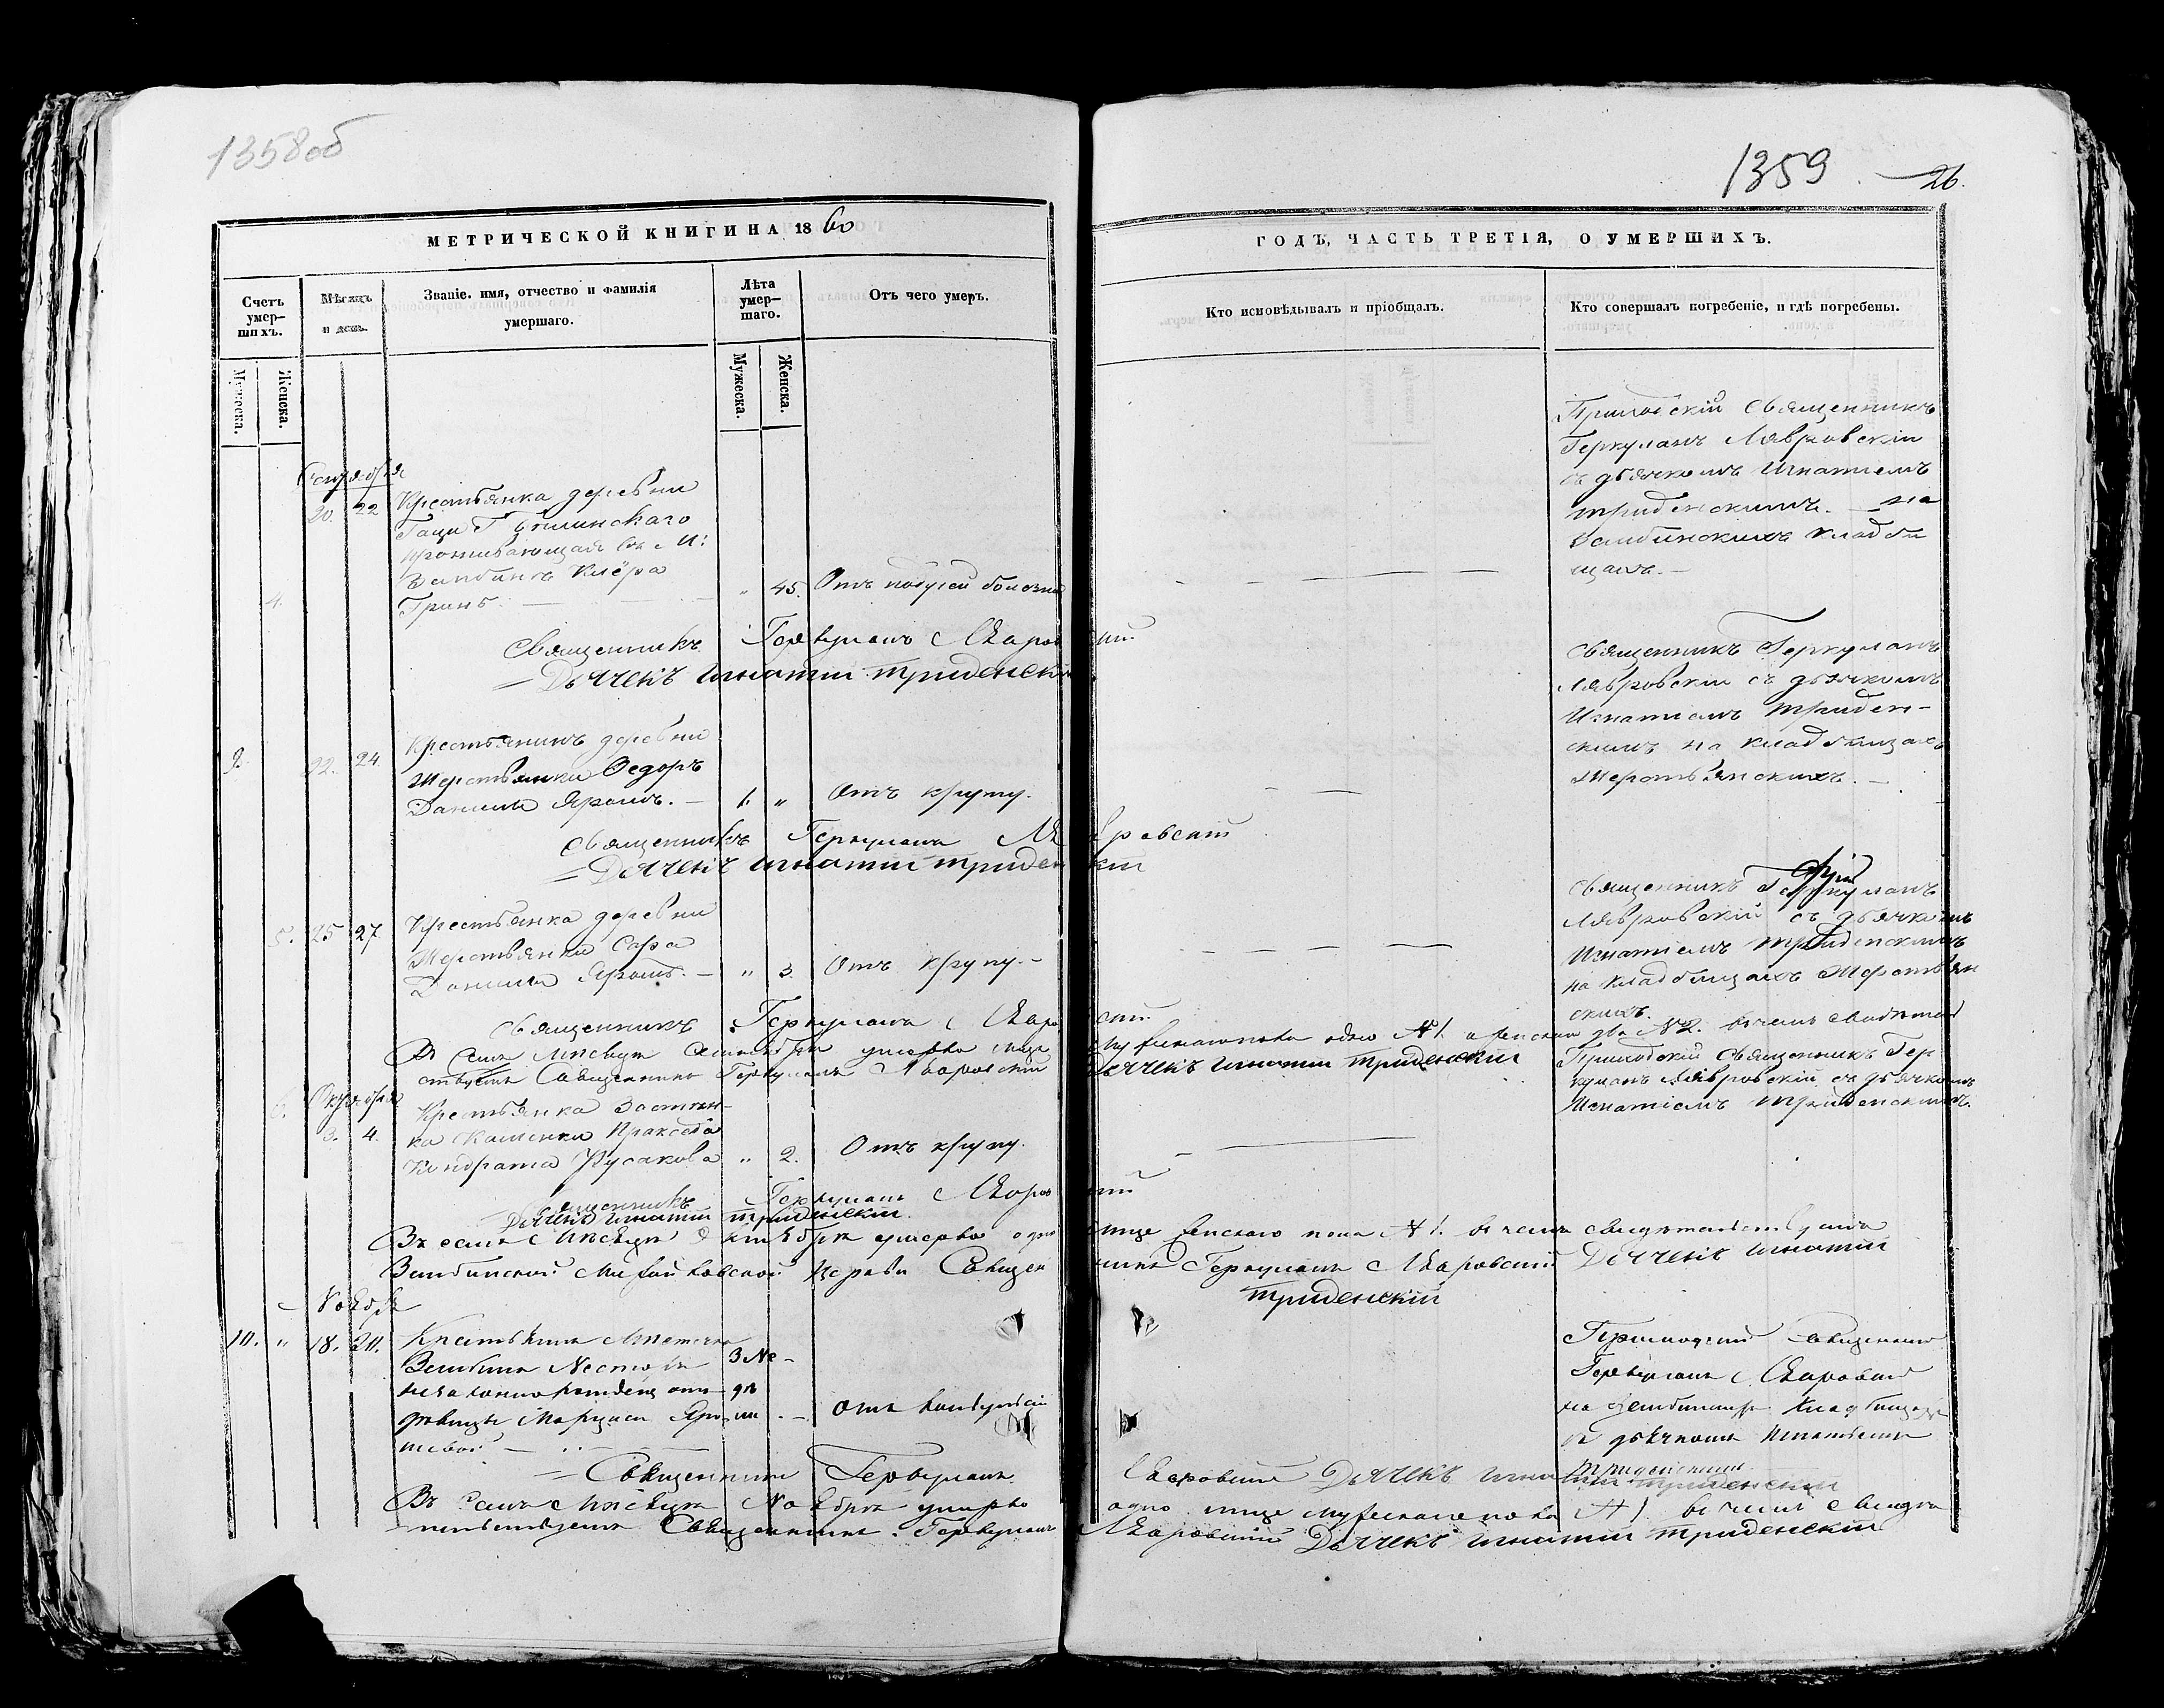 1358об
1359
26.
МЕТРИЧЕСКОЙ КНИГИ НА 1860
ГОДЪ, ЧАСТЬ ТРЕТІЯ, О УМЕРШИХЪ.
Счетъ умер-
шихъ.
Мужеска.
Женска.
Мѣсяцъ
и день.
Званіе, имя, отчество и фамилія
умершаго.
Лѣта
умер-
шаго.
Мужеска.
Женска.
Отъ чего умеръ.
Кто исповѣдывалъ и пріобщалъ.
Кто совершалъ погребеніе, и гдѣ погребены.
Сентября
4. 20. 22
Крестьянка деревни
проживающая въ М:
Зембинѣ
Гринь.
" 45. Отъ болезни
Приходскій Священникъ
Геркуланъ Лавровскій
съ дьячкомъ Игнатіемъ
Триденскимъ. на
Зембинскихъ кладби
щахъ.
Священникъ Геркуланъ
Дьячекъ Игнатій Триденскій
2. 22. 24.
Крестьянинъ деревни
Жерствянки Ѳедоръ
Данила Ярошъ.
1. " Отъ крупу.
Священникъ Геркуланъ
Лавровскій съ дьячкомъ
Игнатіемъ Триден-
скимъ на кладбищахъ
Жерствянскихъ.
Священникъ Геркуланъ
Дьячекъ Игнатій Триденскій
5. 25 27
Крестьянка деревни
Жерствянки
Данила Ярошъ.
" 3. Отъ крупу.
Священникъ Геркуланъ
Лавровскій съ дьячкомъ
Игнатіемъ Триденскимъ
на кладбищахъ Жерствян
скихъ.
Священникъ Геркуланъ
Въ семъ Мѣсяцѣ Сентябрѣ умерло
одно № 1. а женска два № 2. въ чемъ свидѣтель
ствуетъ Священникъ Геркуланъ Лавровскій
Дьячекъ Игнатій Триденскій
Октября
6. 3. 4.
Крестьянка Застѣн-
ка Каменки
Кондрата Русакова
" 2. Отъ крупу.
Приходскій Священникъ Гер
куланъ Лавровскій съ дьячкомъ
Игнатіемъ Триденскимъ.
Священникъ Геркуланъ
Дьячекъ Игнатій Триденскій.
Въ семъ Мѣсяцѣ Октябрѣ умерло одно
лице женскаго пола № 1. въ чемъ свидѣтельствуетъ
Зембинской Михайловской Церкви Священ
никъ Геркуланъ Лавровскій Дьячекъ Игнатій
Триденскій
Ноября
10. " 18. 20.
Мѣстечка
Зембина
незаконно рожденъ отъ
дѣвицы
3 Не-
дѣ
ли
отъ
Приходскій Священникъ
Геркуланъ Лавровскій
на Кладбищахъ
съ дьячкомъ Игнатіемъ
Триденскимъ
Священникъ Геркуланъ
Лавровскій Дьячекъ Игнатій Триденскій
Въ семъ Мѣсяцѣ Ноябрѣ умерло
одно лице мужескаго пола № 1. въ чемъ свидѣ
тельствуетъ Священникъ Геркуланъ
Лавровскій Дьячекъ Игнатій Триденскій